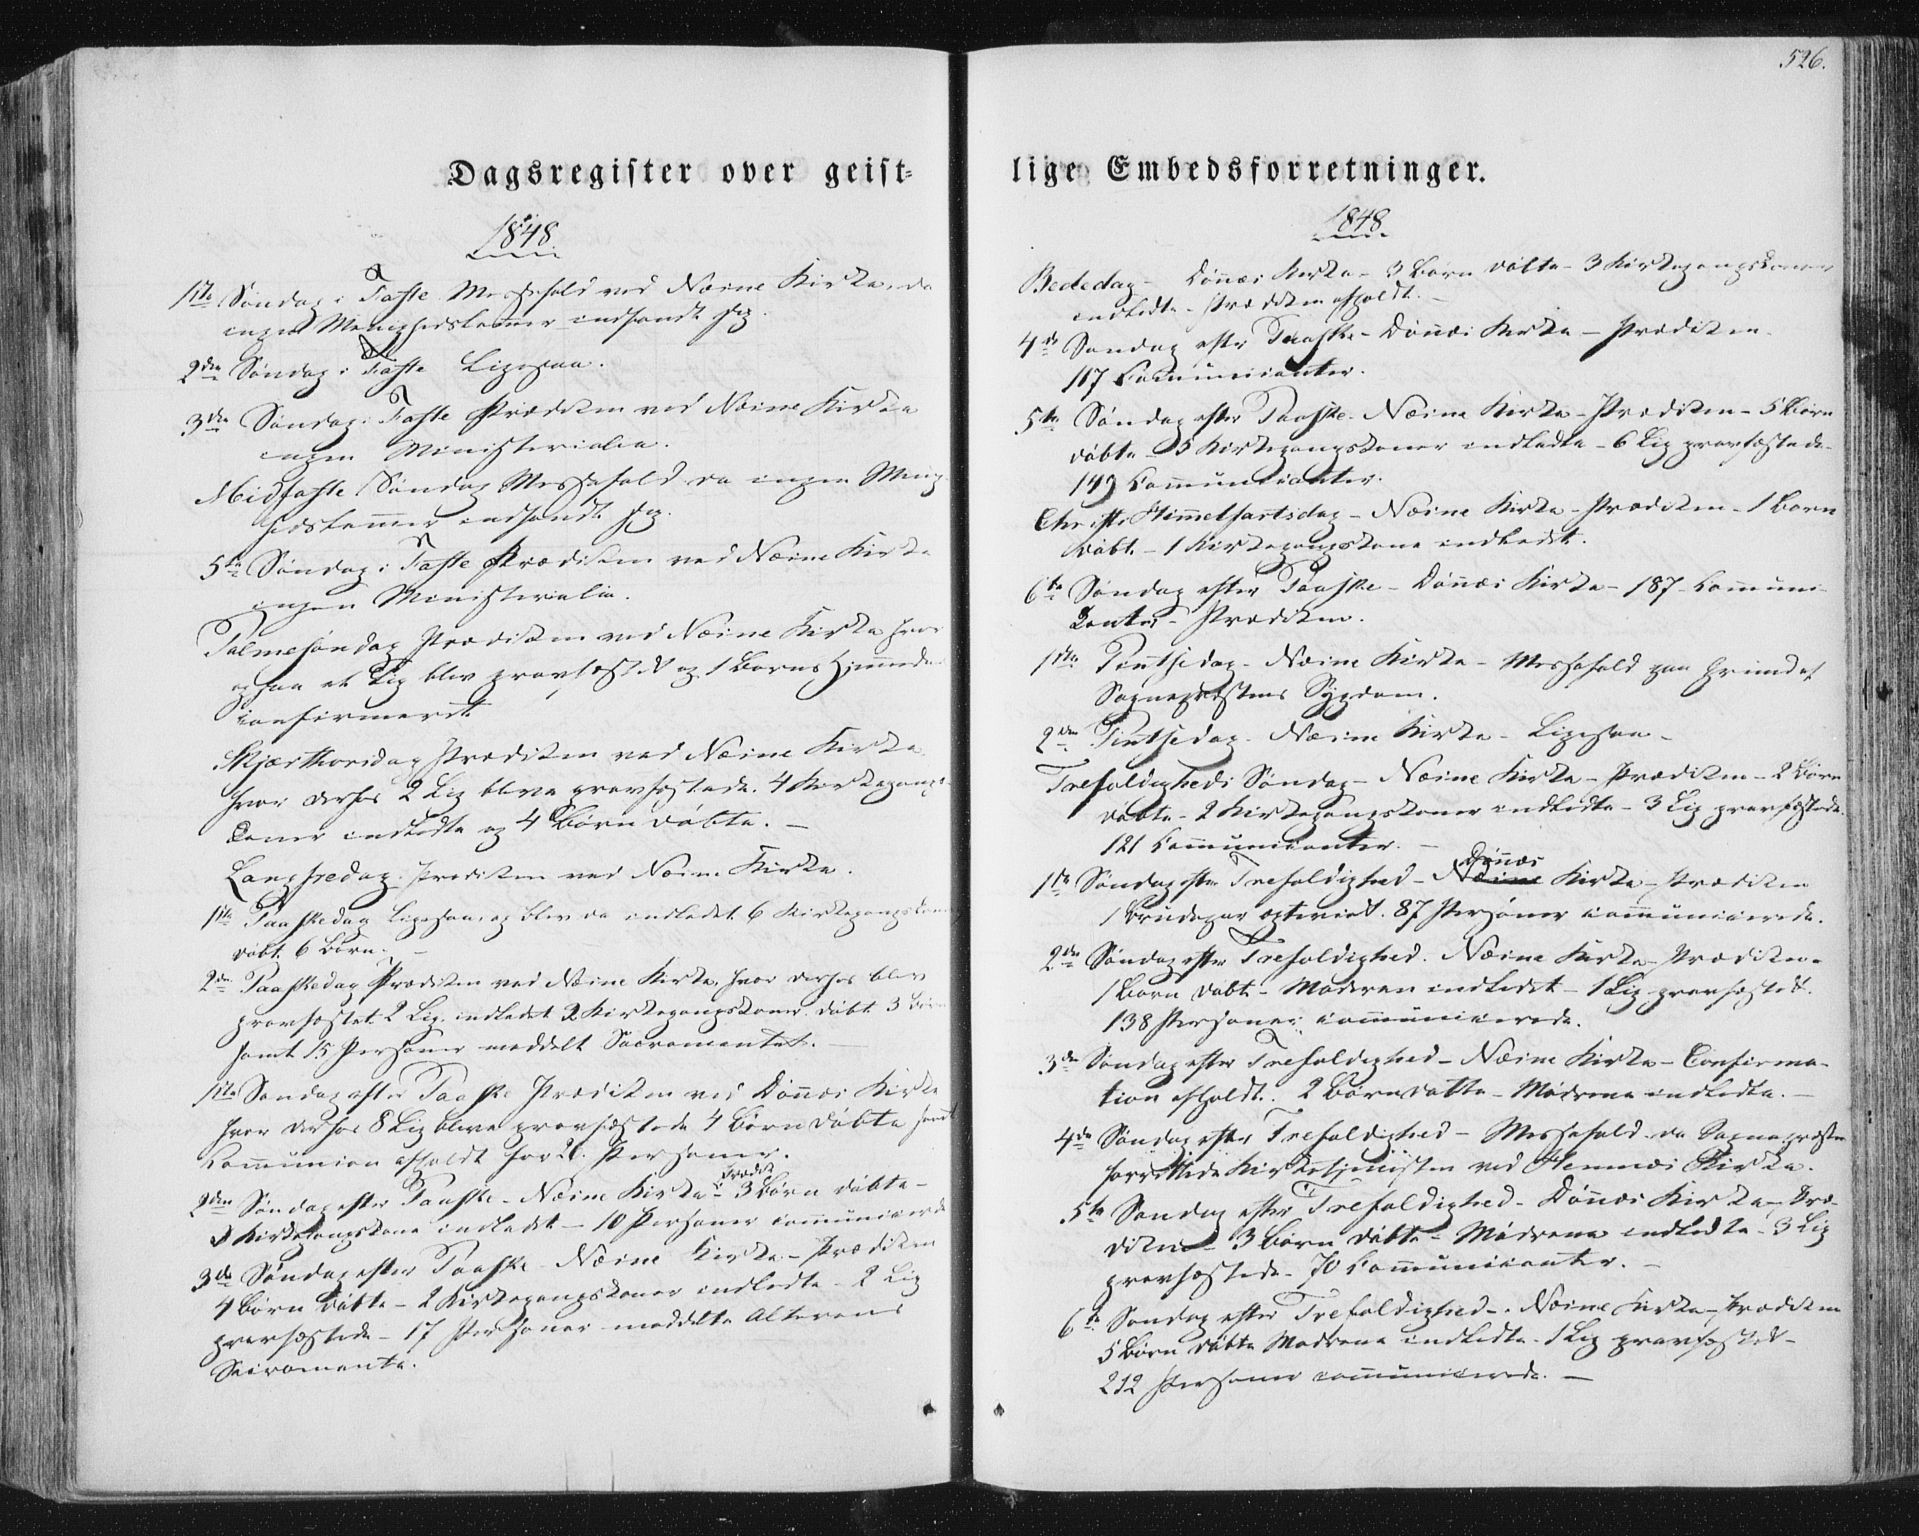 Dagsregister over geist-
1848.
1ste Søndag i Faste Messefald ved Næsne Kirke, da
ingen Menighedslemmer indfandt sig.
2den Søndag i Faste Ligesaa.
3die Søndag i Faste Prædiken ved Næsne Kirke
ingen Ministerialia.
Midfaste Søndag Messefald da ingen Menig-
hedslemmer indfandt sig.
5te Søndag i Faste Prædiken ved Næsne Kirke
ingen Ministerialia.
Palmesøndag Prædiken ved Næsne Kirke hvor
ogsaa et Lig blev gravfæstet og 1 Barns Hjemmedaab
confirmeret
Skjærthorsdag Prædiken ved Næsne Kirke
hvor derhos 2 Lig bleve gravfæstede. 4 Kirkegangs-
koner indledte og 4 Børn døbte. —
Langfredag. Prædiken ved Næsne Kirke.
1ste Paaskedag Ligesaa, og blev da indledet 6 Kirkegangskoner
døbt 6 Børn. —
2den Paaskedag Prædiken ved Næsne Kirke, hvor derhos blev
gravfæstet 2 Lig. indledet 2 Kirkegangskoner. døbt 3 Børn
samt 15 Personer meddelt Sacramentet. —
1ste Søndag efter Paaske Prædiken ved Dønnæs Kirke
hvor derhos 8 Lig bleve gravfæstede 4 Børn døbte samt
Communion afholdt for Personer.
Prædik
2den Søndag efter Paaske - Næsne Kirke - 3 Børn døbte -
Kirkegangskone indledet - 10 Personer communicerede
3die Søndag efter Paaske - Næsne Kirke - Prædiken
4 Børn døbte - 2 Kirkegangskoner indledte - 2 Lig
gravfæstede - 17 Personer meddelte Alterens
Sacramente.
526.
lige Embedsforretninger.
1848
Bededag - Dønnæs Kirke - 3 Børn døbte - 3 Kirkegangskoner
indledte - Prædiken afholdt. -
4de Søndag efter Paaske - Dønnæs Kirke - Prædiken -
117 Communicanter.
5te Søndag efter Paaske. Næsne Kirke - Prædiken - 5 Børn
døbte - 5 Kirkegangskoner indledte - 6 Lig gravfæstede -
149 Communicanter.
Christi Himmelfartsdag - Næsne Kirke - Prædiken - 1 Barn
døbt - 1 Kirkegangskone indledet.
6te Søndag efter Paaske - Dønnæs Kirke - 187 Communi-
kanter - Prædiken.
1ste Pintsedag - Næsne Kirke - Messefald paa Grund af
Sognepræstens Sygdom.
2den Pintsedag - Næsne Kirke - Ligesaa -
Trefoldigheds Søndag - Næsne Kirke - Prædiken - 2 Børn
døbte - 2 Kirkegangskoner indledte - 3 Lig gravfæstede
121 Communicanter. -
Dønnæs
1ste Søndag efter Trefoldighed - Næsne Kirke - Prædiken
1 Brudepar copuleret. 87 Personer communicerede.
2den Søndag efter Trefoldighed. Næsne Kirke - Prædiken -
1 Barn døbt - Moderen indledet - 1 Lig gravfæstet.
138 Personer communicerede.
3die Søndag efter Trefoldighed - Næsne Kirke - Confirma-
tion afholdt. 2 Børn døbte - Mødrene indledte. -
4de Søndag efter Trefoldighed - Messefald - da Sognepræsten
forrettede Kirketjenesten ved Hemnæs Kirke.
5te Søndag efter Trefoldighed - Dønnæs Kirke - Præ-
diken - 3 Børn døbte - Mødrene indledte - 3 Lig
gravfæstede - 70 Communicanter. -
6te Søndag efter Trefoldighed - Næsne Kirke - Prædiken
5 Børn døbte Mødrene indledte - 1 Lig gravfæstet -
212 Personer communicerede. -